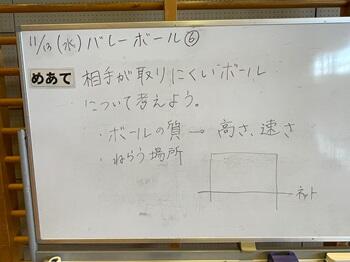 11/13(水)バレーボール⑥
めあて 相手が取りにくいボール
について考えよう。
・ボールの質 → 高さ、速さ
・ねらう場所
ネット